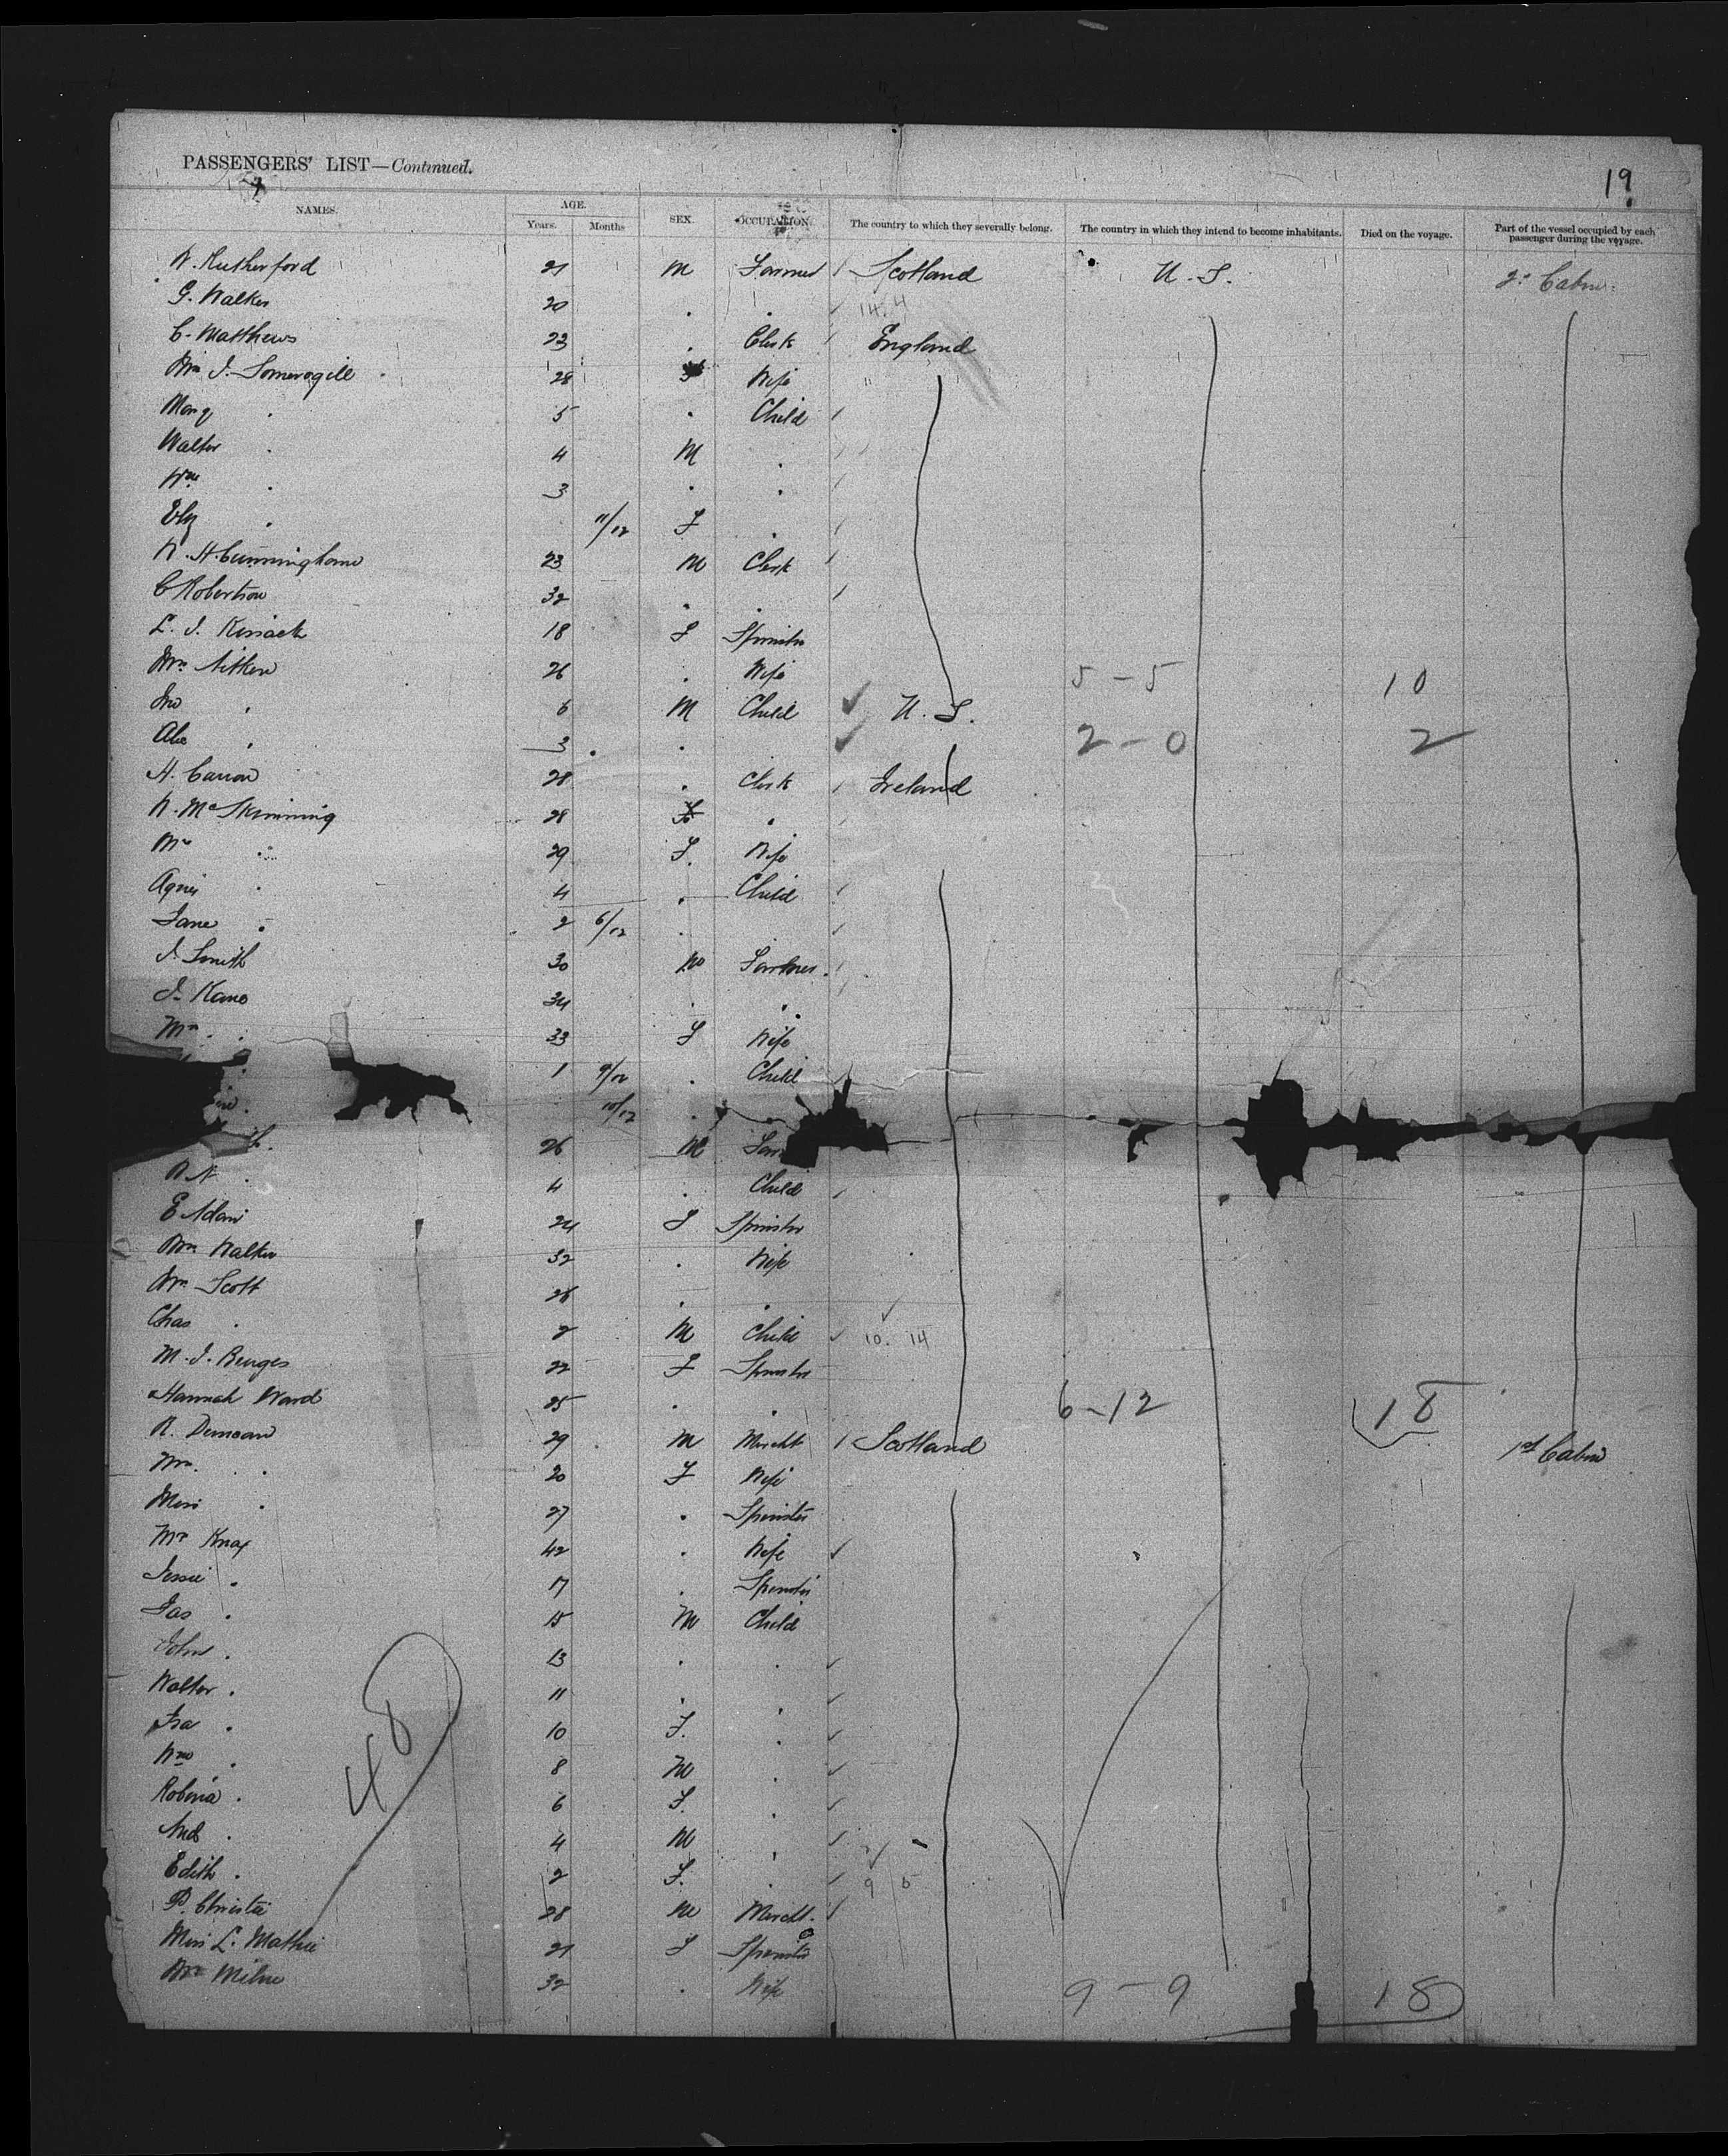 PASSENGERS' LIST—Continued.
19
NAMES. AGE. Years. Months SEX. OCCUPATION. The country to which they severally belong. The country in which they intend to become inhabitants. Died on the voyage. Part of the vessel occupied by each passenger during the voyage.
W. Rutherford 21 M Farmer Scotland U.S. 2d Cabin
G. Walker 20 . . 14.4
C. Matthews 23 . Clerk England
Mrs J. Somersgill 28 F Wife "
Mary . 5 . Child
Walter . 4 M .
Wm . 3 . .
Eliz . 11/12 F .
W. H. Cunningham 23 M Clerk
C Robertson 32 . .
L. J. Kissack 18 F Spinster
Mrs Aitken 26 . Wife 5-5 10
Jno . 6 M Child U.S.
Alex . 3 . . 2-0 2
H. Carson 28 . Clerk Ireland
W. McSkimming 28 .
Mrs . 29 F. Wife
Agnes . 4 . Child
Jane . 2 6/12 .
J. Smith 30 M Farmer.
J. Kane 34 . .
Mrs . 33 F Wife
1 9/12 . Child
10/12 .
26 M
4 . Child
E Adam 24 F Spinster
Mrs Walker 32 . Wife
Mrs Scott 26 . .
Chas . 2 M Child 10. 14
M. J. Benges 22 F Spinster
Hannah Ward 25 . . 6-12 18
R. Duncan 29 M Mercht Scotland 1st Cabin
Mrs . 20 F Wife
Miss . 27 . Spinster
Mrs Knox 42 . Wife
Jessie . 17 . Spinster
Jas . 15 M Child
John . 13 . .
Walter . 11 . .
Isa . 10 F. .
Wm . 8 M .
Robina . 6 F. .
And . 4 M .
Edith . 2 F. . 9 5
P. Christie 28 M Mercht.
Miss L. Mathie 21 F Spinster
Mrs Milne 32 . Wife 9-9 18
48